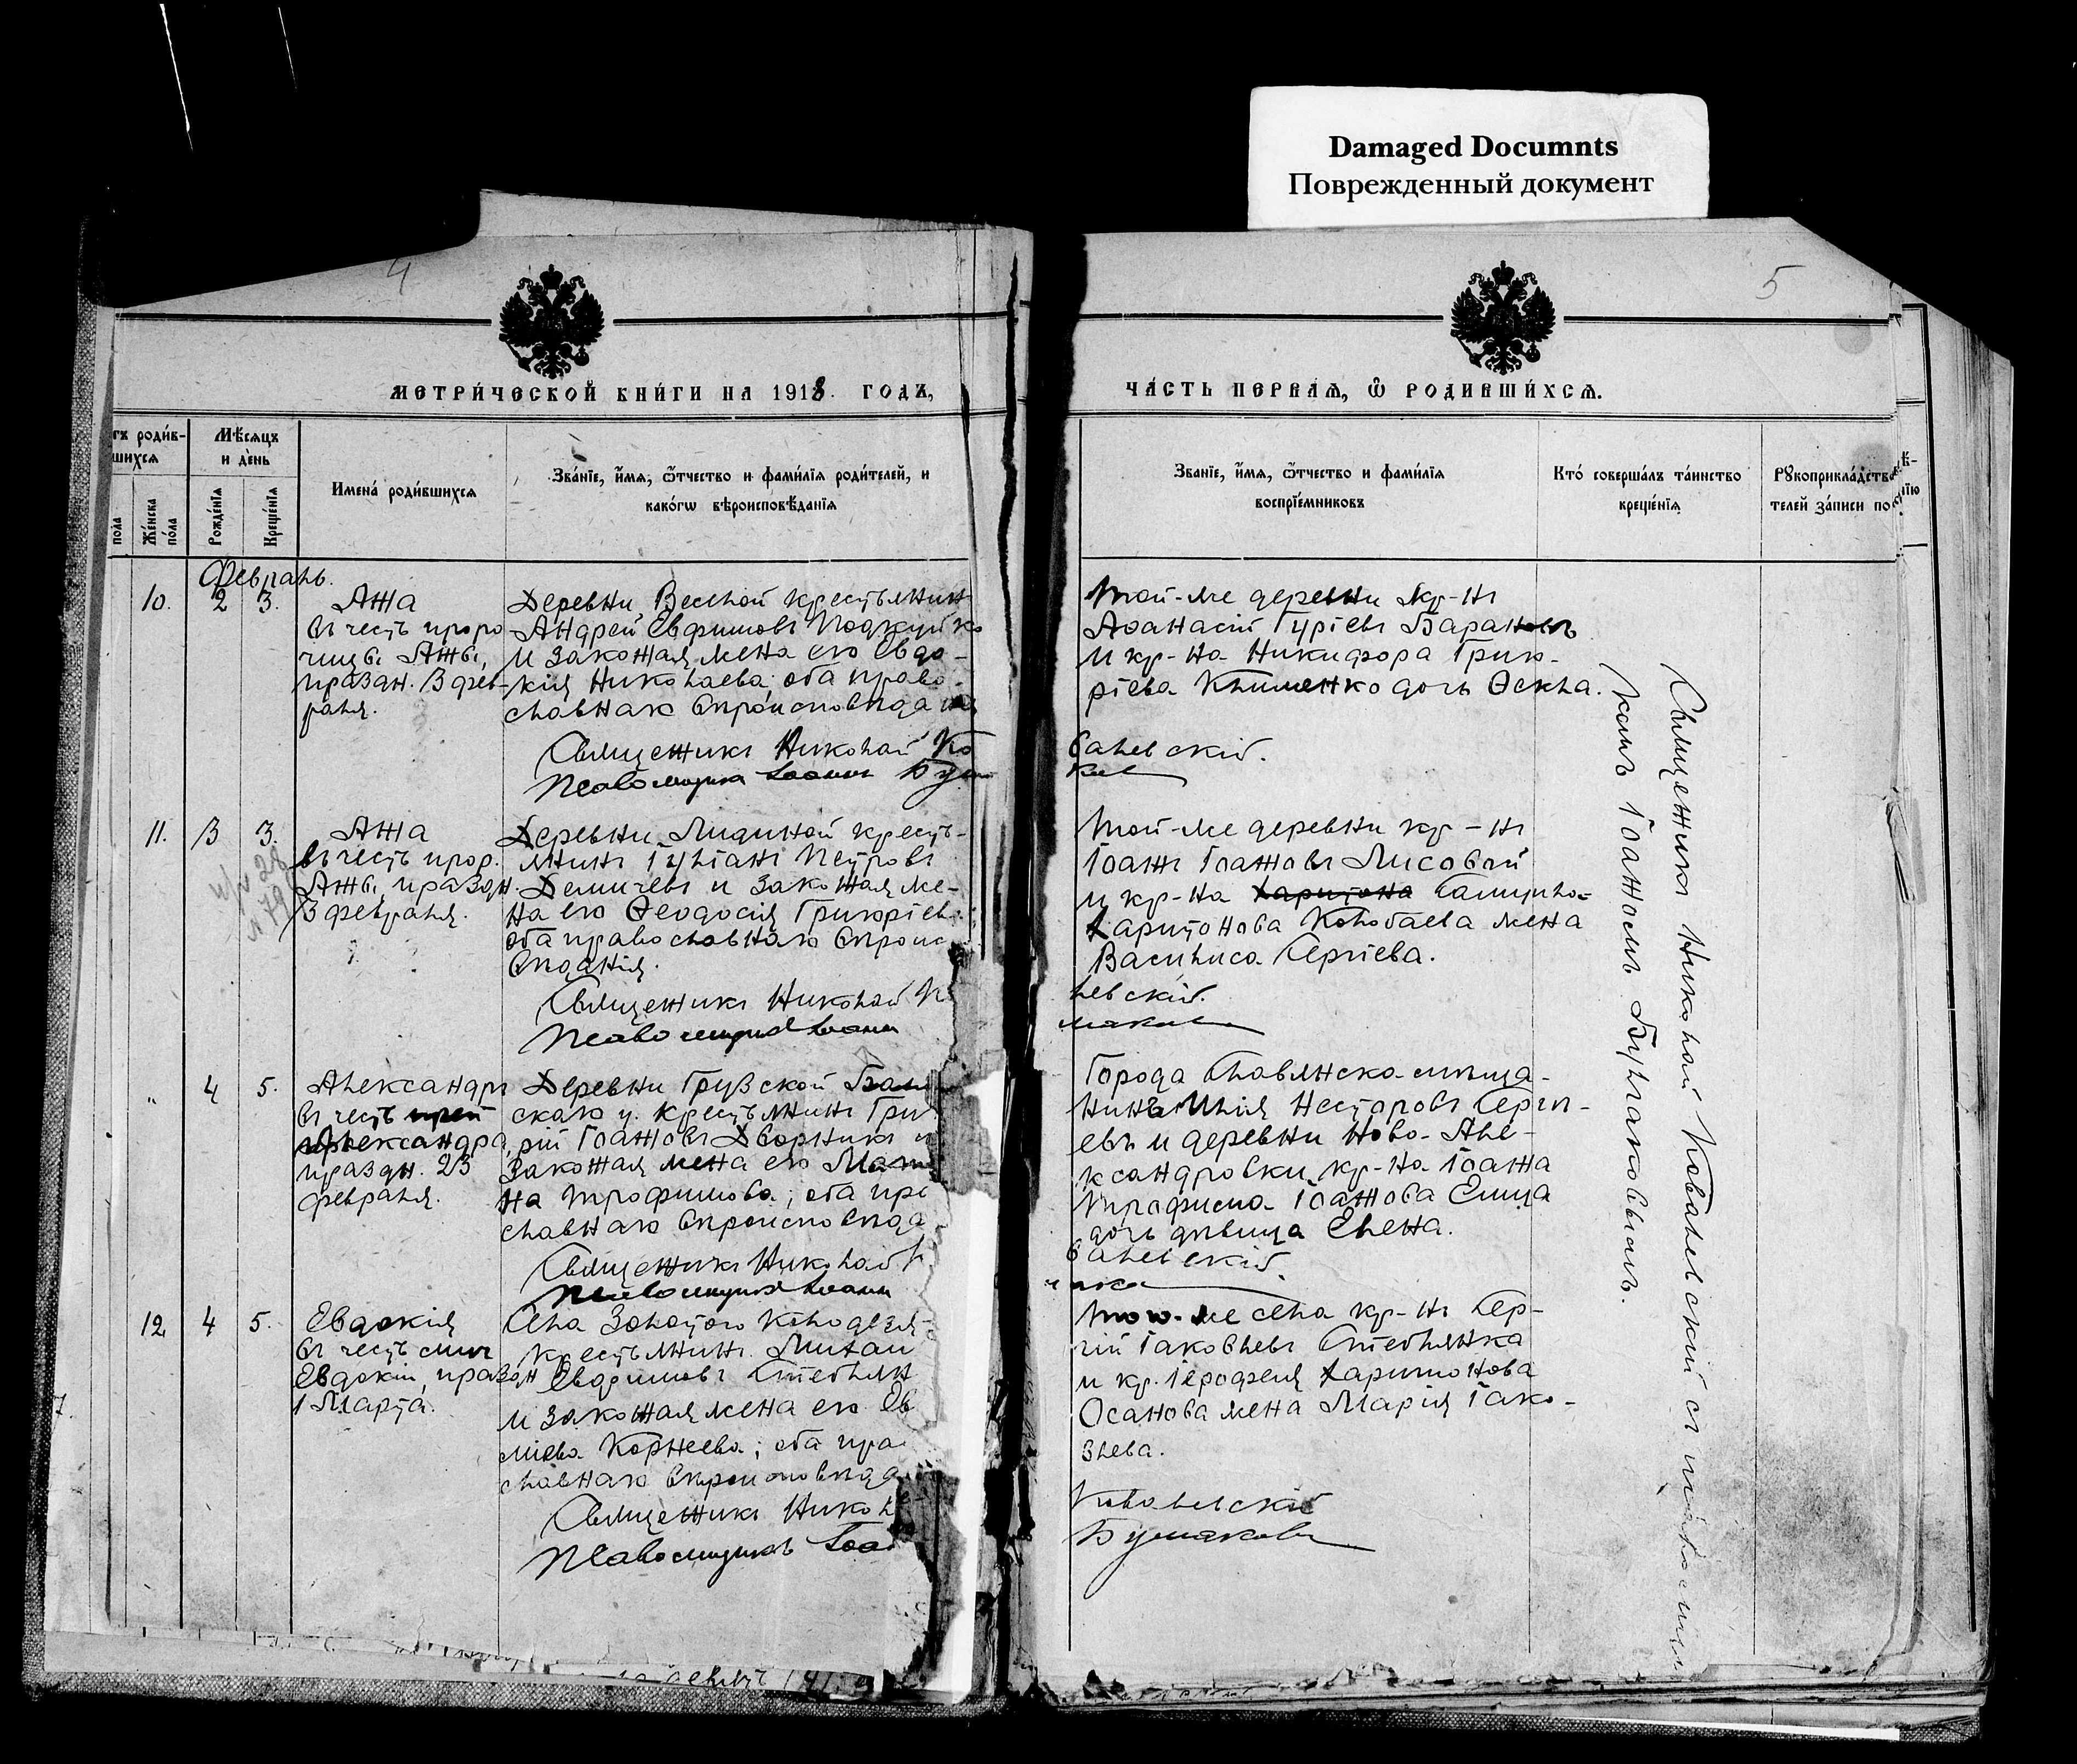 Damaged Documnts
Поврежденный документ
4
МЕТРИ́ЧЕСКОЙ КНИ́ГИ НА 1918. ГОДЪ,
гъ роди́в-
шихсѧ
Мѣ́сѧцъ
и де́нь
пола
Же́нска
по́ла
Рожде́нїѧ
Креще́нїѧ
Имена̀ роди́вшихсѧ
Зва́нїе, и҆́мѧ, ѻ҆́тчество и фами́лїѧ роди́телей, и
како́гѡ вѣроисповѣ́данїѧ
Февраль.
10.
2
3.
Анна
въ честь проро
чицы Анны,
праздн. 3 фев-
раля.
Деревни Веселой крестьянинъ
Андрей Евфимовъ
и законная жена его Евдо-
кія Николаева; оба право-
славнаго вѣроисповѣда
Священникъ Николай Ко
Псаломщикъ Іоаннъ Бу
11.
3
3.
Анна
въ честь прор.
Анны, праздн.
3 февраля.
Деревни Лидиной кресть-
янинъ Іуліанъ Петровъ
Демичевъ и законная же-
на его Ѳеодосія Григоріев
оба православнаго вѣроис
вѣданія.
Священникъ Николай К
Псаломщикъ Іоаннъ
"
4
5.
Александръ
въ честь
Александра,
праздн. 23
февраля.
Деревни Грузской
крестьянинъ Гри
рій Іоанновъ Дворникъ и
законная жена его
на Трофимова; оба пра
славнаго вѣроисповѣда
Священникъ Николай К
Псаломщикъ Іоаннъ
12
4
5.
Евдокія
въ честь
Евдокіи, праздн
1 Марта.
Села Золотого Колодезя
крестьянинъ Михаи
Евфимовъ Стеблян
и законная жена его Ев
Корнеева; оба пра
славнаго вѣроисповѣда
Священникъ Никол
Псаломщикъ Іоа
5
ЧА́СТЬ ПЕРВАѦ, Ѽ РОДИВШИ́ХСѦ.
Зва́нїе, и҆́мѧ, ѻ҆́тчество и фами́лїѧ
воспрїе́мниковъ
Кто̀ соверша́лъ та́инство
креще́нїѧ
Рꙋкоприкла́дств
телей за́писи по
Той-же деревни кр-нъ
Аѳанасій Гуріевъ Барановъ
и кр-на Никифора Григо-
ріева Клименко дочь Ѳекла.
валевскій.
Той-же деревни кр-нъ
Іоаннъ Іоанновъ Лисовой
и кр-на Харитона Самуила-
Харитонова Колобаева жена
Василиса Сергіева.
левскій.
маковъ
Города Славянска мѣща-
нинъ Илія Несторовъ Серги-
евъ и деревни Ново-Але-
ксандровки кр-на Іоанна
дочь дѣвица Елена.
валевскій.
Того-же села кр-нъ Сер-
гій Іаковлевъ Стеблянка
и кр. Іерофея Харитонова
Осанова жена Марія Іако-
влева.
Ковалевскій
Бушмаковъ
Священникъ Николай Ковалевскій съ псаломщи
комъ Іоанномъ